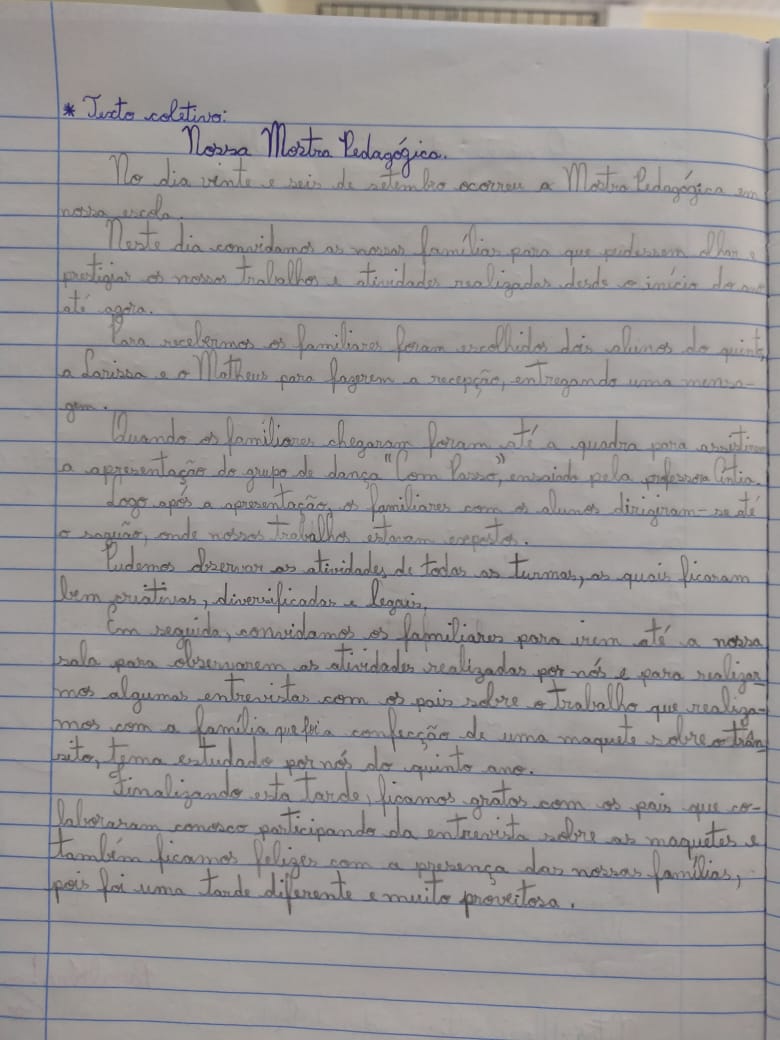 * Texto coletivo:
Nossa Mostra Pedagógica.
No dia vinte e seis de setembro ocorreu a Mostra Pedagógica em
nossa escola.
Neste dia convidamos as nossas famílias para que pudessem olhar e
prestigiar os nossos trabalhos e atividades realizadas desde o início do ano
até agora.
Para recebermos os familiares foram escolhidos dois alunos do quinto,
a Larissa e o Matheus para fazerem a recepção, entregando uma mensa-
gem.
Quando os familiares chegaram foram até a quadra para assistirem
a apresentação do grupo de dança "Com Passo", ensaiado pela professora Cíntia.
Logo após a apresentação, os familiares com os alunos dirigiram-se até
o saguão, onde nossos trabalhos estavam expostos.
Pudemos observar as atividades de todas as turmas, as quais ficaram
bem criativas, diversificadas e legais.
Em seguida, convidamos os familiares para irem até a nossa
sala para observarem as atividades realizadas por nós e para realizar-
mos algumas entrevistas com os pais sobre o trabalho que realiza-
mos com a família que foi a confecção de uma maquete sobre o trân-
sito, tema estudado por nós do quinto ano.
Finalizando esta tarde, ficamos gratos com os pais que co-
laboraram conosco participando da entrevista sobre as maquetes e
também ficamos felizes com a presença das nossas famílias,
pois foi uma tarde diferente e muito proveitosa.